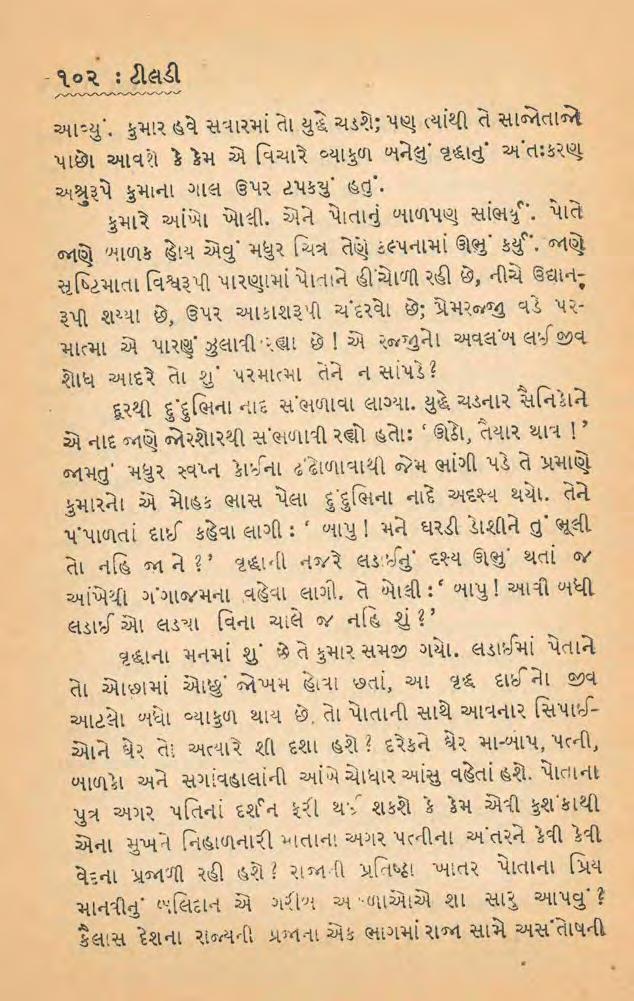 ૧૦૨ : ટીલડી
આવ્યું. કુમાર હવે સવારમાં તો યુદ્ધે ચડશે; પણ ત્યાંથી તે સાજોતાજો
પાછો આવશે કે કેમ એ વિચારે વ્યાકુળ બનેલું વૃદ્ધાનું અંતઃકરણ
અશ્રુરૂપે કુમાના ગાલ ઉપર ટપક્યું હતું.
કુમારે આંખો ખોલી. એને પોતાનું બાળપણ સાંભર્યું. પોતે
જાણે બાળક હોય એવું મધુર ચિત્ર તેણે કલ્પનામાં ઊભું કર્યું. જાણે
સૃષ્ટિમાતા વિશ્વરૂપી પારણામાં પોતાને હીંચોળી રહી છે, નીચે ઉદ્યાન-
રૂપી શય્યા છે, ઉપર આકાશરૂપી ચંદરવો છે; પ્રેમરજ્જુ વડે પર-
માત્મા એ પારણું ઝુલાવી રહ્યા છે! એ રજ્જુનો અવલંબ લઈ જીવ
શોધ આદરે તો શું પરમાત્મા તેને ન સાંપડે?
દૂરથી દુંદુભિના નાદ સંભળાવા લાગ્યા. યુદ્ધે ચડનાર સૈનિકોને
એ નાદ જાણે જોરશોરથી સંભળાવી રહ્યો હતોઃ ‘ ઊઠો, તૈયાર થાવ !’
જામતું મધુર સ્વપ્ન કોઈના ઢંઢોળાવાથી જેમ ભાંગી પડે તે પ્રમાણે
કુમારનો એ મોહક ભાસ પેલા દુંદુભિના નાદે અદૃશ્ય થયો. તેને
પંપાળતાં દાઈ કહેવા લાગી : ‘ બાપુ! મને ઘરડી ડોશીને તું ભૂલી
તો નહિ જા ને ?’ વૃદ્ધાની નજરે લડાઈનું દૃશ્ય ઊભું થતાં જ
આંખેથી ગંગાજમના વહેવા લાગી. તે બોલી :‘ બાપુ! આવી બધી
લડાઈઓ લડ્યા વિના ચાલે જ નહિ શું ?’
વૃદ્ધાના મનમાં શું છે તે કુમાર સમજી ગયો. લડાઈમાં પોતાને
તો ઓછામાં ઓછું જોખમ હોવા છતાં, આ વૃદ્ધ દાઈનો જીવ
આટલો બધો વ્યાકુળ થાય છે, તો પોતાની સાથે આવનાર સિપાઈ-
ઓને ઘેર તો અત્યારે શી દશા હશે? દરેકને ઘેર મા-બાપ, પત્ની,
બાળકો અને સગાંવહાલાંની આંખે ચોધાર આંસુ વહેતાં હશે. પોતાના
પુત્ર અગર પતિનાં દર્શન ફરી થઈ શકશે કે કેમ એવી કુશંકાથી
એના મુખને નિહાળનારી માતાના અગર પત્નીના અંતરને કેવી કેવી
વેદના પ્રજાળી રહી હશે? રાજાની પ્રતિષ્ઠા ખાતર પોતાના પ્રિય
માનવીનું બલિદાન એ ગરીબ અબળાઓએ શા સારુ આપવું ?
કૈલાસ દેશના રાજ્યની પ્રજાના એક ભાગમાં રાજા સામે અસંતોષની